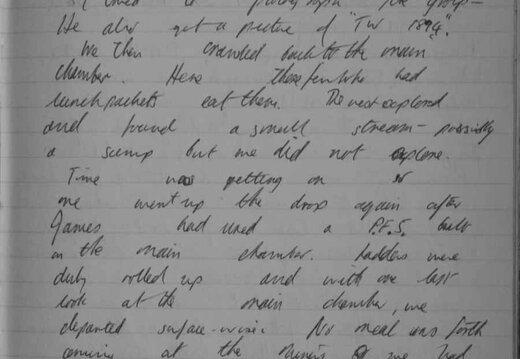 the group -
We also got a picture of "TW 1894".
We then crawled back to the main
chamber. Here those few who had
lunch packets eat them. The rest explored
and found a small stream - possibly
a sump but we did not explore.
Time was getting on so
one went up the drop again after
James had used a P.F.S. built
in the main chamber. Ladders were
duly rolled up and with one last
look at the main chamber, we
departed surface-wise. No meal was forth
coming at the as we had